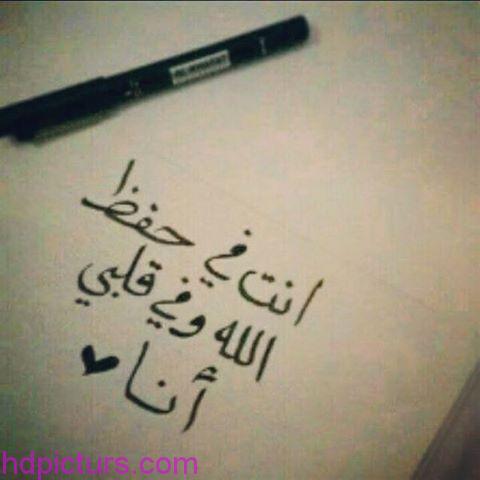 انت في حفظ
الله وفي قلبي
أنا
hdpicturs.com